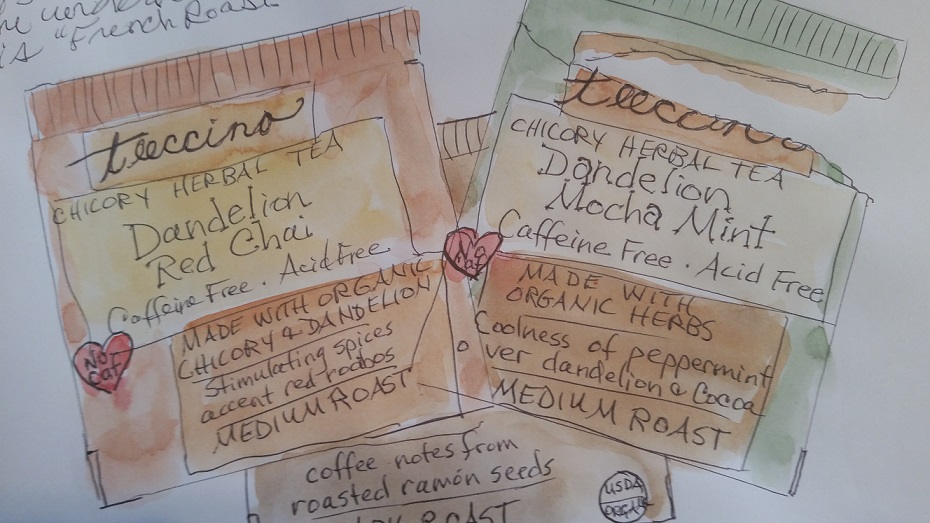 is "French Roast"
teeccino
CHICORY HERBAL TEA
Dandelion
Red Chai
Caffeine Free . Acid Free
MADE WITH ORGANIC
CHICORY & DANDELION
Stimulating spices
accent red rooibos
MEDIUM ROAST
NO
caf
teeccino
CHICORY HERBAL TEA
Dandelion
Mocha Mint
Caffeine Free . Acid Free
No
caf
MADE WITH
ORGANIC HERBS
Coolness of peppermint
ver dandelion & Cocoa
MEDIUM ROAST
coffee notes from
roasted ramón seeds
ROAST
USDA
ORGANIC